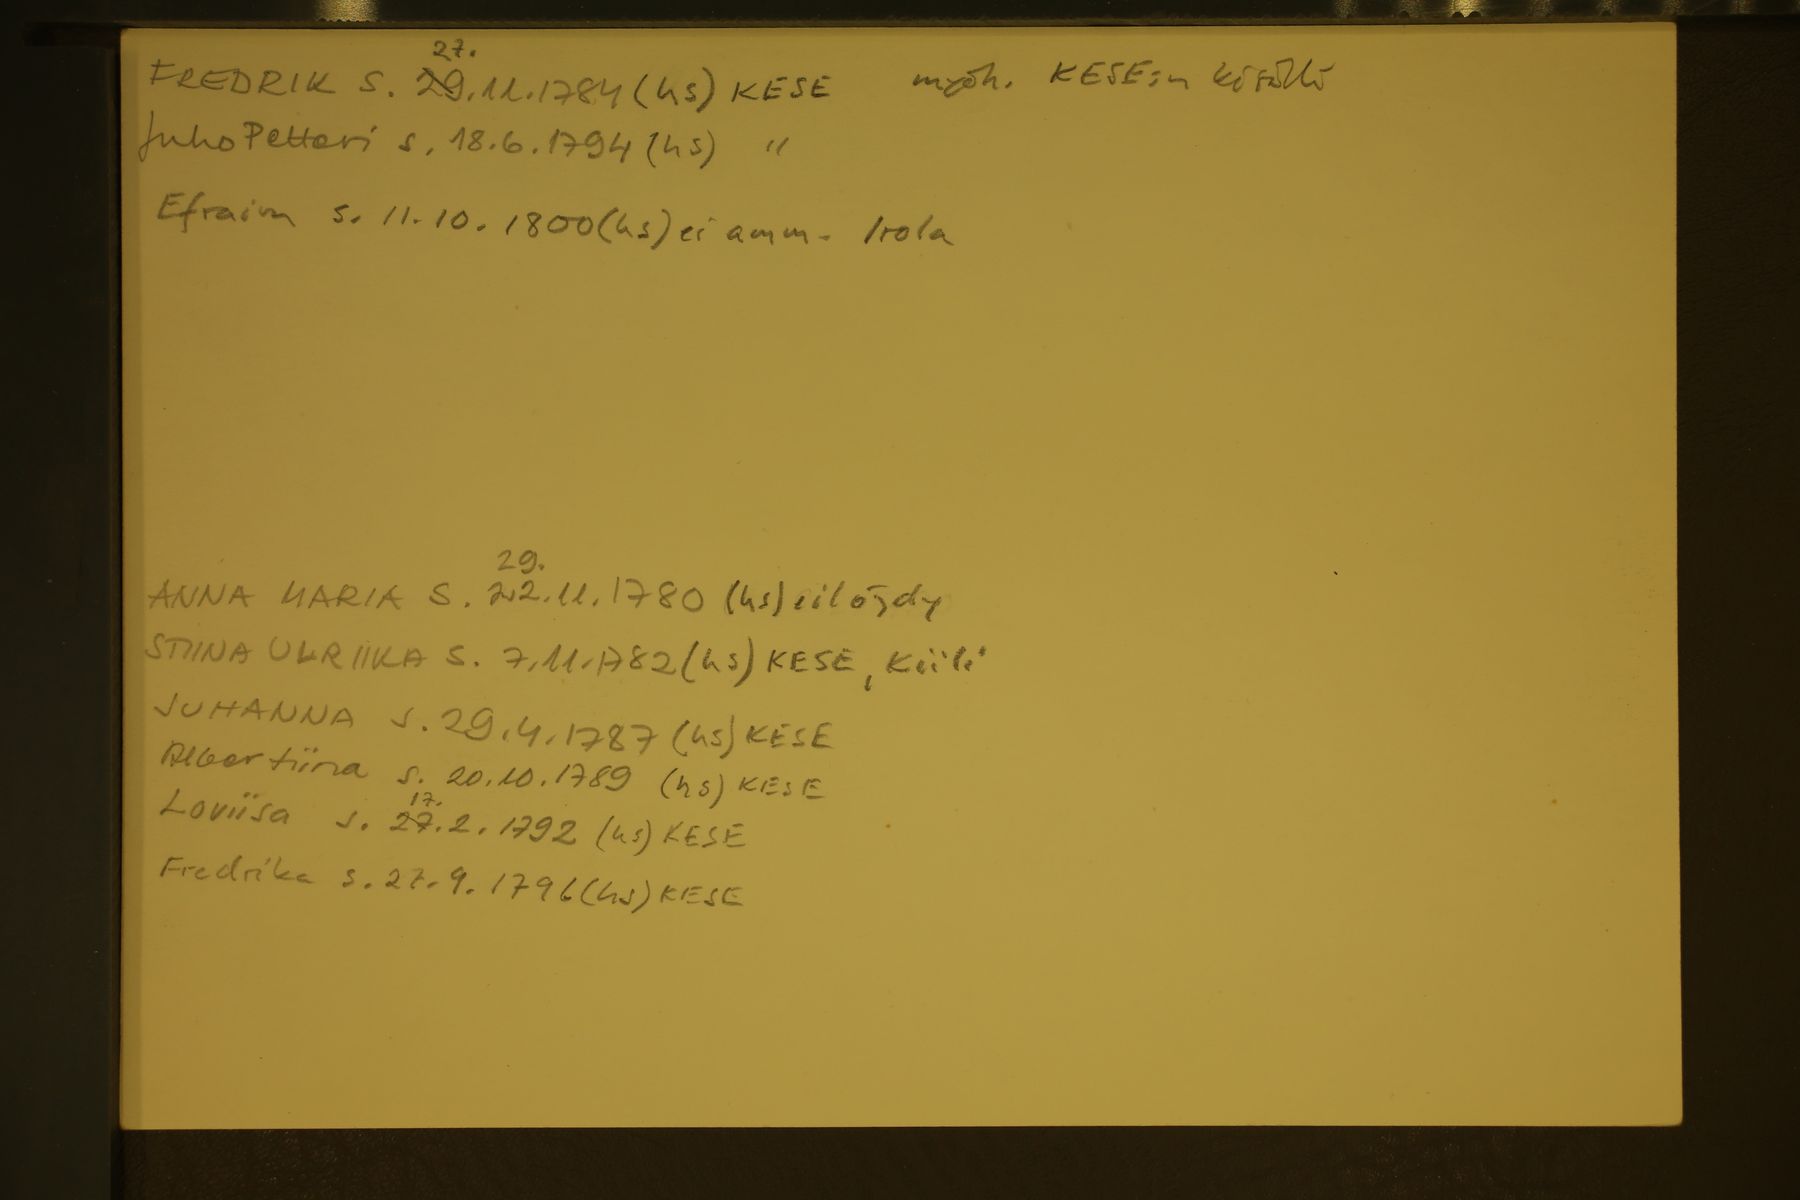 27.
FREDRIK S. 29.11.1784 (hs) KESE myöh. KESE:n
Juho Petteri s. 18.6.1794 (hs) "
Efraim s. 11.10.1800 (hs) ei amm. Irola
29.
ANNA MARIA S. 22.11.1780 (hs) ei löydy
STIINA ULRIIKA S. 7.11.1782 (hs) KESE, Kiili
JUHANNA s. 29.4.1787 (hs) KESE
Albertiina s. 20.10.1789 (hs) KESE
17.
Loviisa s. 27.2.1792 (hs) KESE
Fredrika s. 27.9.1796 (hs) KESE